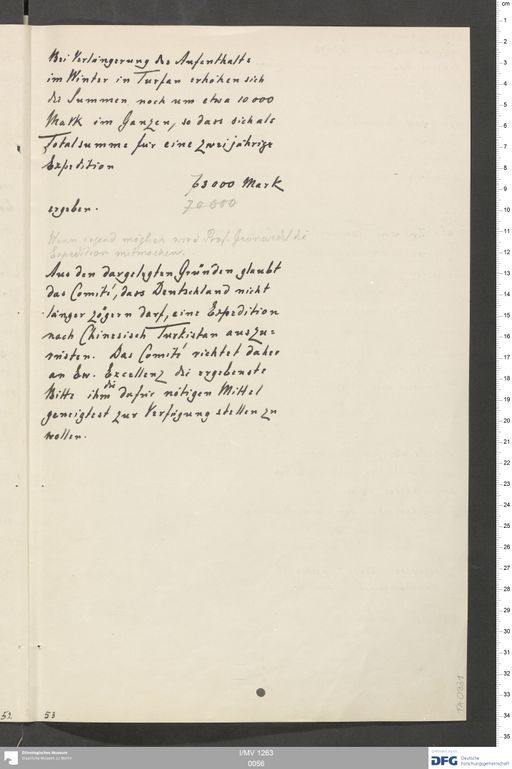 Bei Verlängerung des Aufenthalts
im Winter in Turfan erhöhen sich
die Summen noch um etwa 10 000
Mark im Ganzen, so dass sich als
Totalsumme für eine zweijährige
Expedition
63 000 Mark
ergeben.
70 000
Wenn irgend möglich wird Prof. Grünwedel die
Expedition mitmachen.
Aus den dargelegten Gründen glaubt
das Comité, dass Deutschland nicht
länger zögern darf, eine Expedition
nach Chinesisch Turkistan auszu=
rüsten. Das Comité richtet daher
an Ew. Excellenz die ergebenste
Bitte ihm die dafür nötigen Mittel
geneigtest zur Verfügung stellen zu
wollen.
52
53
TA 0931
Ethnologisches Museum
Staatliche Museen zu Berlin
I/MV 1263
0056
DFG
Deutsche
Forschungsgemeinschaft
cm
1
2
3
4
5
6
7
8
9
10
11
12
13
14
15
16
17
18
19
20
21
22
23
24
25
26
27
28
29
30
31
32
33
34
35